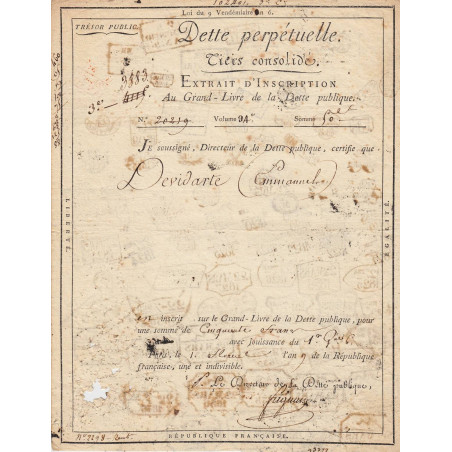 Loi du 9 Vendémiaire an 6.
TRÉSOR PUBLIC.
Dette perpétuelle.
Tiers consolidé.
EXTRAIT D'INSCRIPTION
Au Grand-Livre de la Dette publique.
N.º 20219 Volume 94. Somme 50.
JE soussigné, Directeur de la Dette publique, certifie que
Devidarte (Emmanuel)
LIBERTÉ.
ÉGALITÉ.
est inscrit sur le Grand-Livre de la Dette publique, pour
une somme de Cinquante francs
avec Jouissance du 1er
Paris, le 1. floréal l'an 9 de la République
française, une et indivisible.
Le Directeur de la Dette publique,
RÉPUBLIQUE FRANÇAISE.